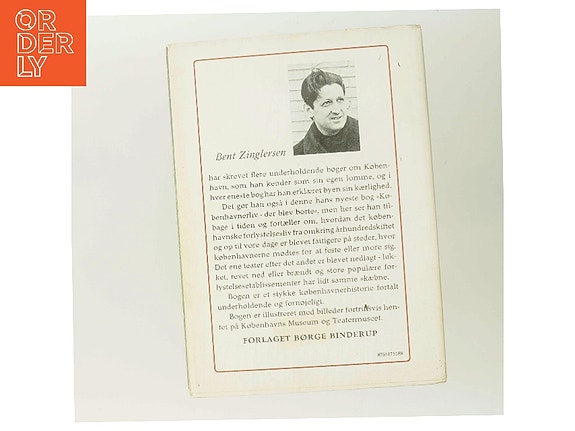 OR
DER
LY
Bent Zinglersen
har skrevet flere underholdende bøger om Køben-
havn, som han kender som sin egen lomme, og i
hver eneste bog har han erklæret byen sin kærlighed.
Det gør han også i denne hans nyeste bog »Kø-
benhavnerliv - der blev borte«, men her ser han til-
bage i tiden og fortæller om, hvordan det køben-
havnske forlystelsesliv fra omkring århundredskiftet
og op til vore dage er blevet fattigere på steder, hvor
københavnerne mødtes for at feste eller more sig.
Det ene teater efter det andet er blevet nedlagt - luk-
ket, revet ned eller brændt og store populære for-
lystelsesetablissementer har lidt samme skæbne.
Bogen er et stykke københavnerhistorie fortalt
underholdende og fornøjeligt.
Bogen er illustreret med billeder fortrinsvis hen-
tet på Københavns Museum og Teatermuseet.
FORLAGET BØRGE BINDERUP